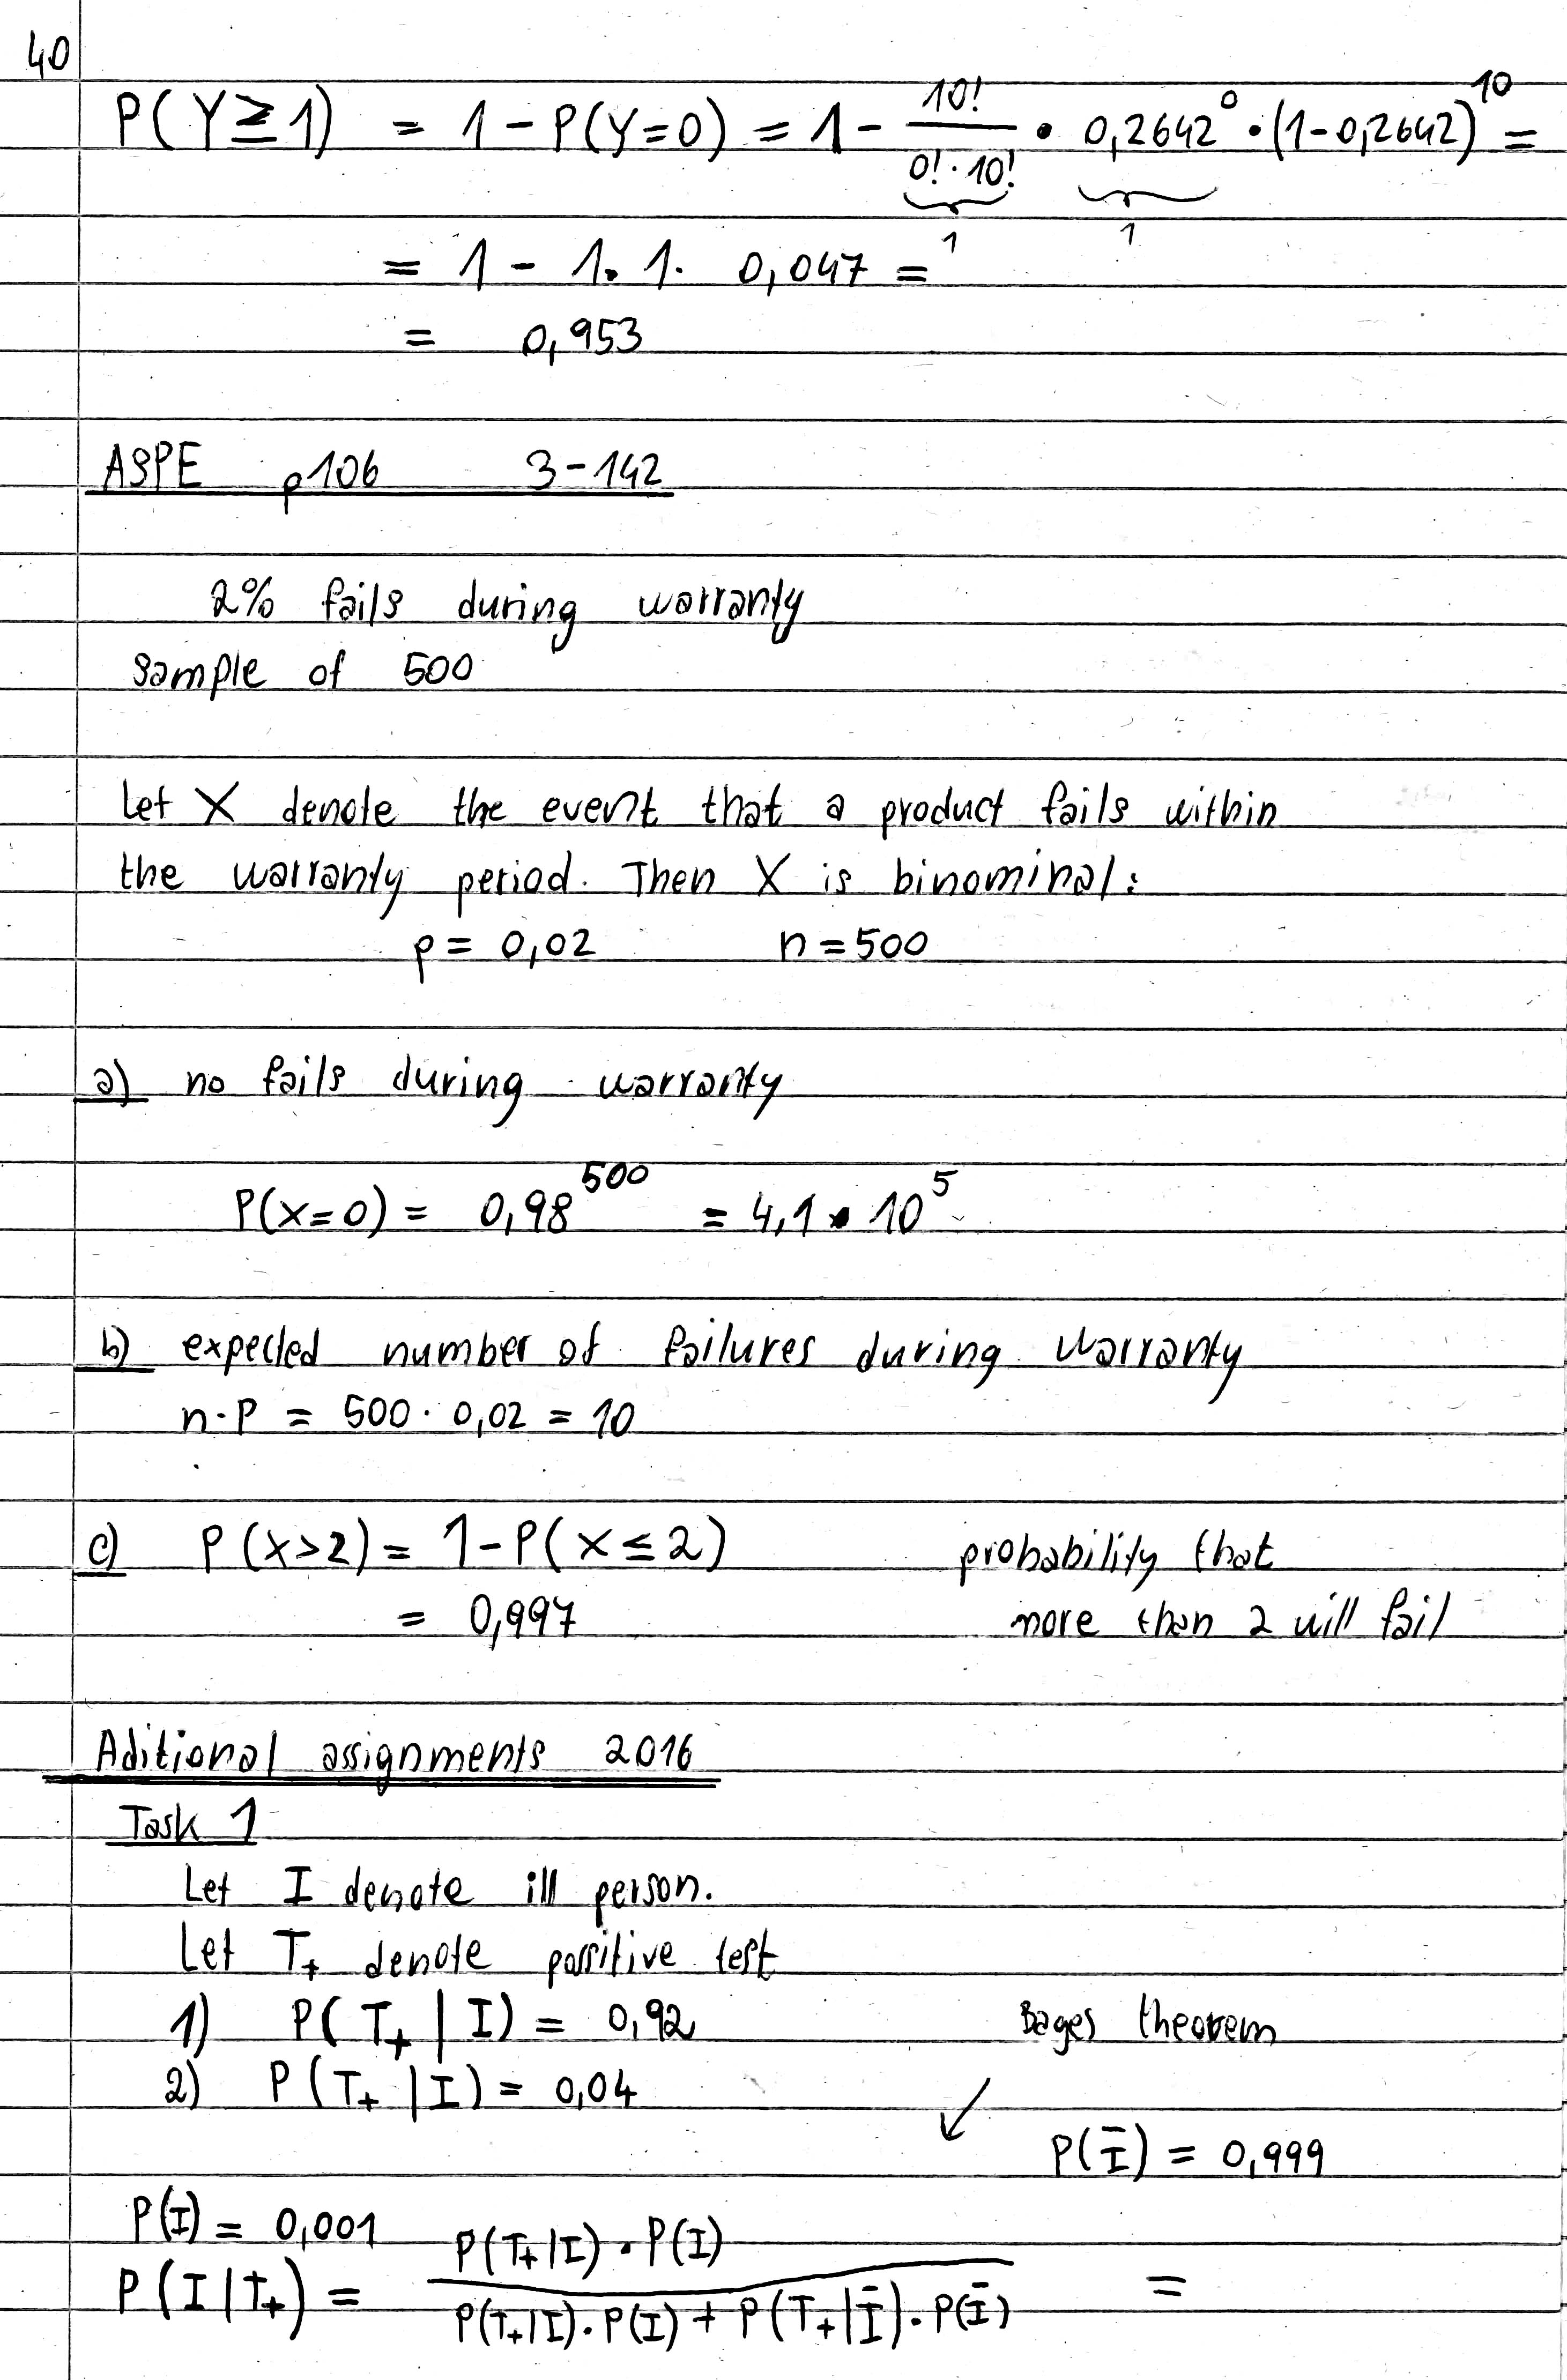 40
P(Y≥1) = 1 - P(Y=0) = 1 - 10!/(0!·10!) · 0,2642^0 · (1-0,2642)^10 =
1 1
= 1 - 1. 1. 0,047 =
= 0,953
ASPE p106 3-142
2% fails during warranty
Sample of 500
Let X denote the event that a product fails within
the warranty period. Then X is binominal:
p = 0,02 n = 500
a) no fails during warranty
P(X=0) = 0,98^500 = 4,1 • 10^5
b) expected number of failures during warranty
n·P = 500 · 0,02 = 10
c) P(X>2) = 1-P(X≤2) probability that
= 0,997 more than 2 will fail
Aditional assignments 2016
Task 1
Let I denote ill person.
Let T+ denote possitive test
1) P(T+ | I) = 0,92 Bayes theorem
2) P(T+ | I) = 0,04
P(Ī) = 0,999
P(I) = 0,001
P(I|T+) = P(T+|I) · P(I) / P(T+|I)·P(I) + P(T+|Ī)·P(Ī) =